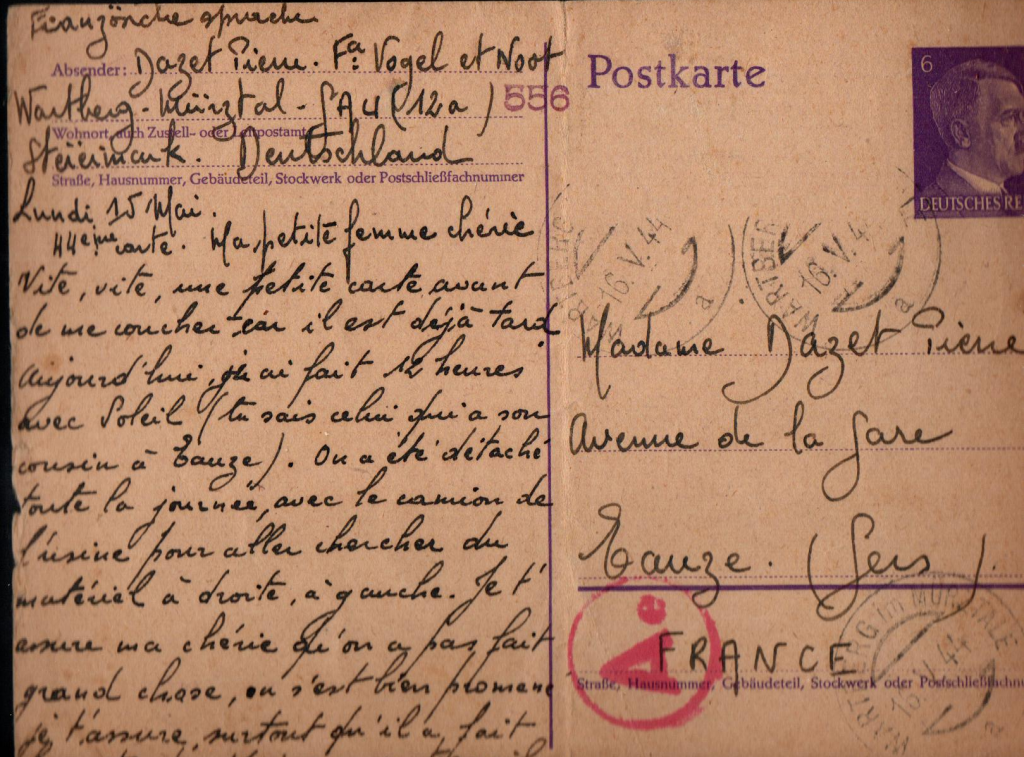 Französische sprache
Absender: Dazet Pierre. Fa: Vogel et Noot
Wartberg - Mürztal - GAU (12a) 556
Wohnort, auch Zustell- oder Leitpostamt
Steiermark. Deutschland
Straße, Hausnummer, Gebäudeteil, Stockwerk oder Postschließfachnummer
Lundi 15 Mai.
44eme carte. Ma petite femme chérie
Vite, vite, une petite carte avant
de me coucher car il est déjà tard
Aujourd'hui, j'ai fait 12 heures
avec Soleil (tu sais celui qui a son
cousin à Eauze). On a été détaché
toute la journée, avec le camion de
l'usine pour aller chercher du
matériel à droite, à gauche. Je t'
assure ma chérie qu'on a pas fait
grand chose, on s'est bien promené
je t'assure, surtout qu'il a fait
Postkarte
6
DEUTSCHES RE
WARTBERG
16.V.44
a
WARTBERG
16.V.4
a
Madame Dazet Pierre
Avenue de la Gare
Eauze. (Gers).
Ae
FRANCE
Straße, Hausnummer, Gebäudeteil, Stockwerk oder Postschließfachnu
WARTBERG im MÜRZTALE
16.V.44
a